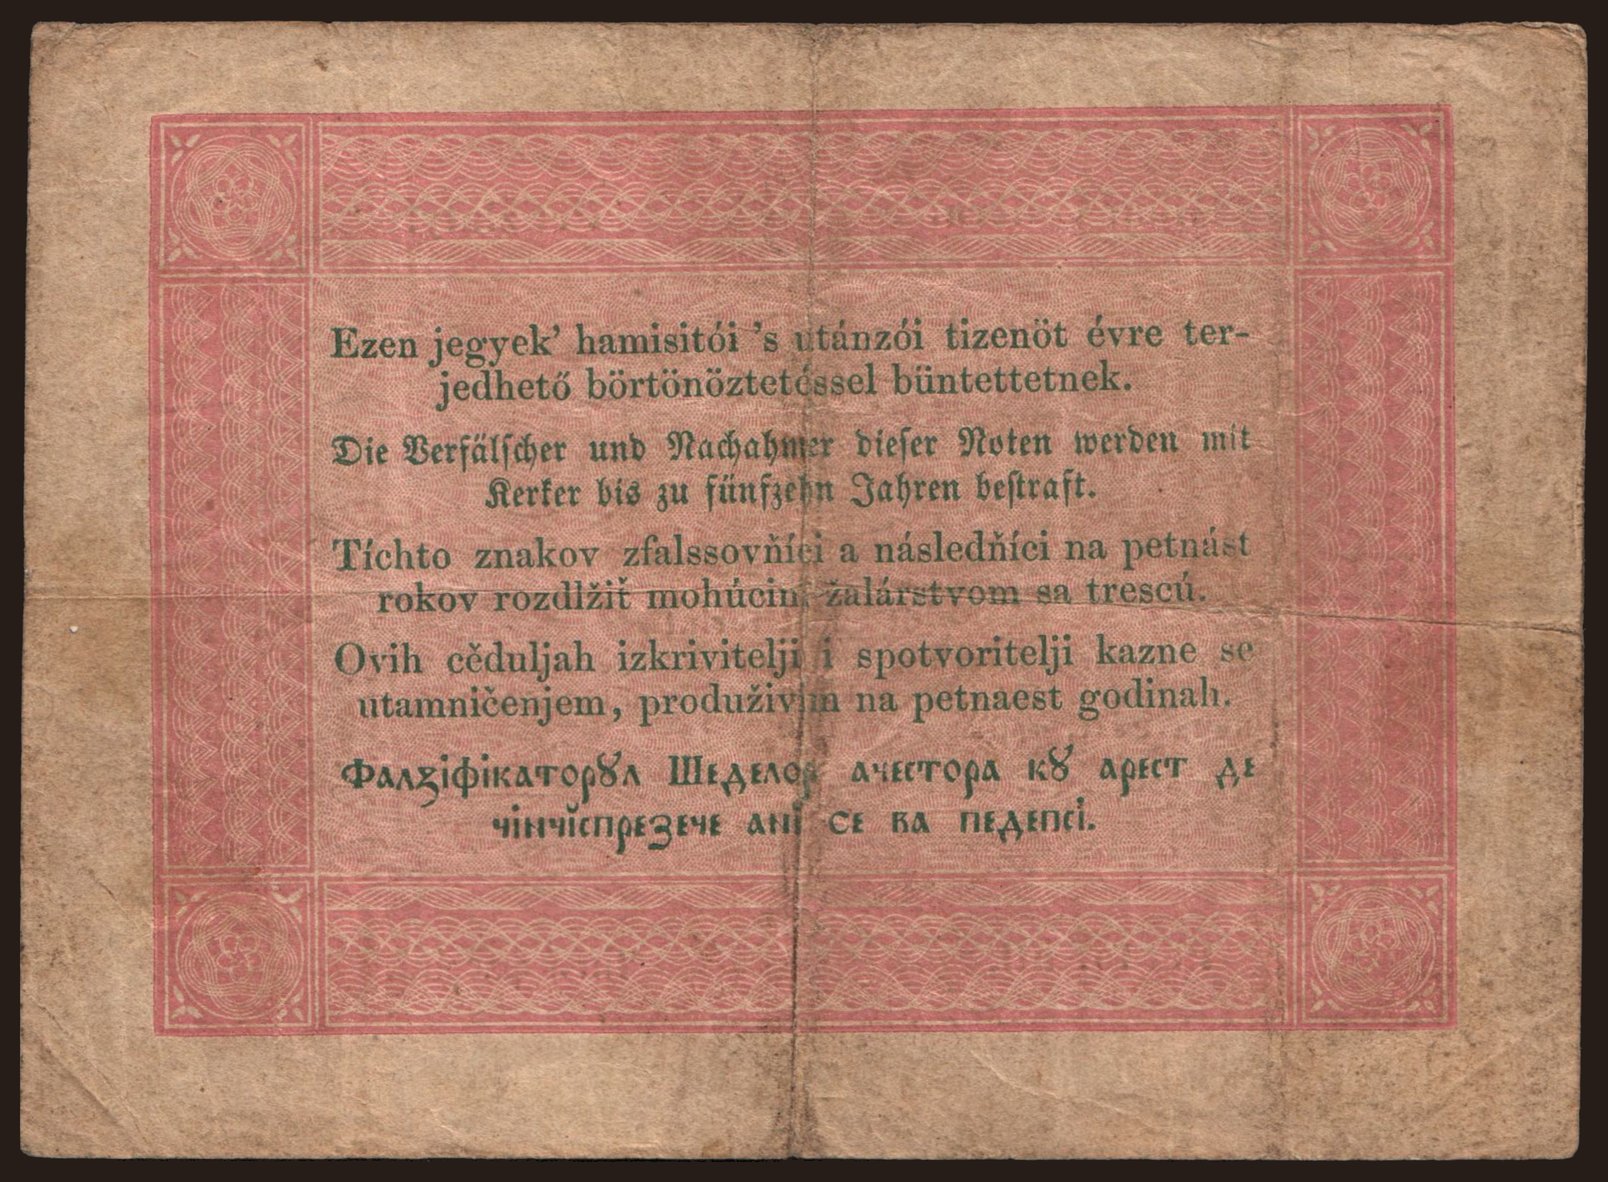 Ezen jegyek’ hamisitói ’s utánzói tizenöt évre ter-
jedhető börtönöztetéssel büntettetnek.
Die Verfälſcher und Nachahmer dieſer Noten werden mit
Kerker bis zu fünfzehn Jahren beſtraft.
Tíchto znakov zfalssovňíci a následňíci na petnást
rokov rozdlžiť mohúcim žalárstvom sa trescú.
Ovih cěduljah izkrivitelji i spotvoritelji kazne se
utamničenjem, produživim na petnaest godinah.
Фалзіфікаторꙋл Шеделор ачестора кꙋ арест де
чінчĭспрезече ані се ва педепсі.